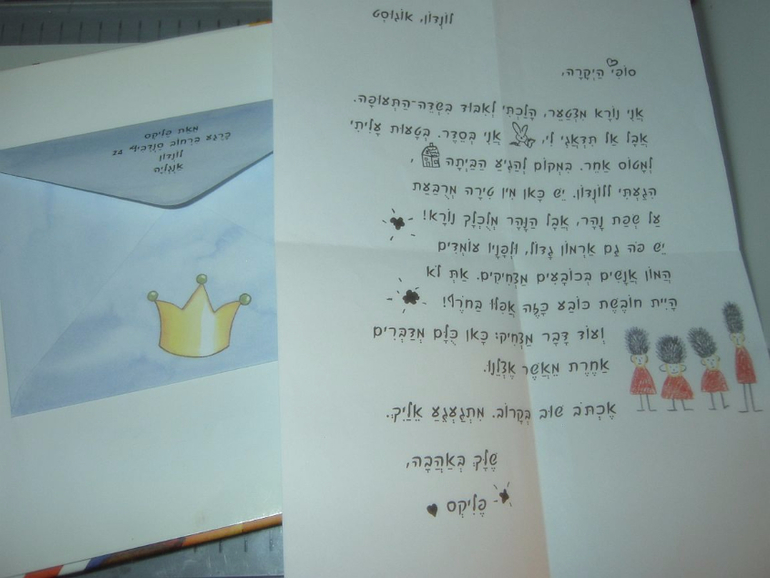 מאת פליקס
כָּרֶגַע בִּרְחוֹב סֶנְדְבִיץ' 24
לוֹנְדוֹן
אַנְגְלִיָה
לוֹנְדוֹן, אוֹגוּסְט
סוֹפִי הַיְקָרָה,
אֲנִי נוֹרָא מִצְטַעֵר, הָלַכְתִּי לְאִבּוּד בִּשְׂדֵה-הַתְּעוּפָה.
אֲבָל אַל תִּדְאֲגִי לִי, אֲנִי בְּסֵדֶר. בְּטָעוּת עָלִיתִי
לְמָטוֹס אַחֵר. בִּמְקוֹם לְהַגִּיעַ הַבַּיְתָה,
הִגַּעְתִּי לְלוֹנְדוֹן. יֵשׁ כָּאן מִין טִירָה מְרֻבַּעַת
עַל שְׂפַת נָהָר, אֲבָל הַנָּהָר מְלֻכְלָךְ נוֹרָא!
יֵשׁ פֹּה גַּם אַרְמוֹן גָּדוֹל, וּלְפָנָיו עוֹמְדִים
הֲמוֹן אֲנָשִׁים בְּכוֹבָעִים מַצְחִיקִים. אַתְּ לֹא
הָיִית חוֹבֶשֶׁת כּוֹבַע כָּזֶה אֲפִלּוּ בַּחֹרֶף!
וְעוֹד דָּבָר מַצְחִיק: כָּאן כֻּלָּם מְדַבְּרִים
אַחֶרֶת מֵאֲשֶׁר אֶצְלֵנוּ.
אֶכְתֹּב שׁוּב בְּקָרוֹב. מִתְגַּעְגֵּעַ אֵלַיִךְ.
שֶׁלָּךְ בְּאַהֲבָה,
פֶלִיקְס